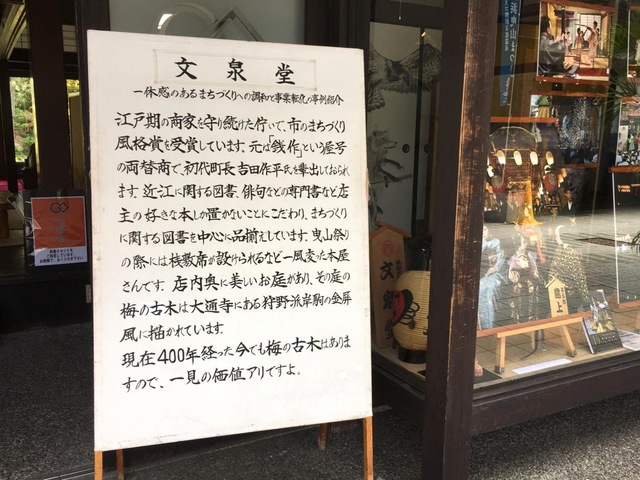 文泉堂
一体感のあるまちづくりへの調和と事業転化の事例紹介
江戸期の商家を守り続けた佇いで、市のまちづくり
風格賞を受賞しています。元は「銭作」という屋号
の両替商で、初代町長吉田作平氏を輩出しておられ
ます。近江に関する図書、俳句などの専門書など店
主の好きな本しか置かないことにこだわり、まちづくり
に関する図書を中心に品揃えしています。曳山祭り
の際には桟敷席が設けられるなど一風変た本屋
さんです。店内奥に美しいお庭があり、その庭の
梅の古木は大通寺にある狩野派岸駒の金屏
風に描かれています。
現在400年経った今でも梅の古木はありま
すので、一見の価値アリですよ。